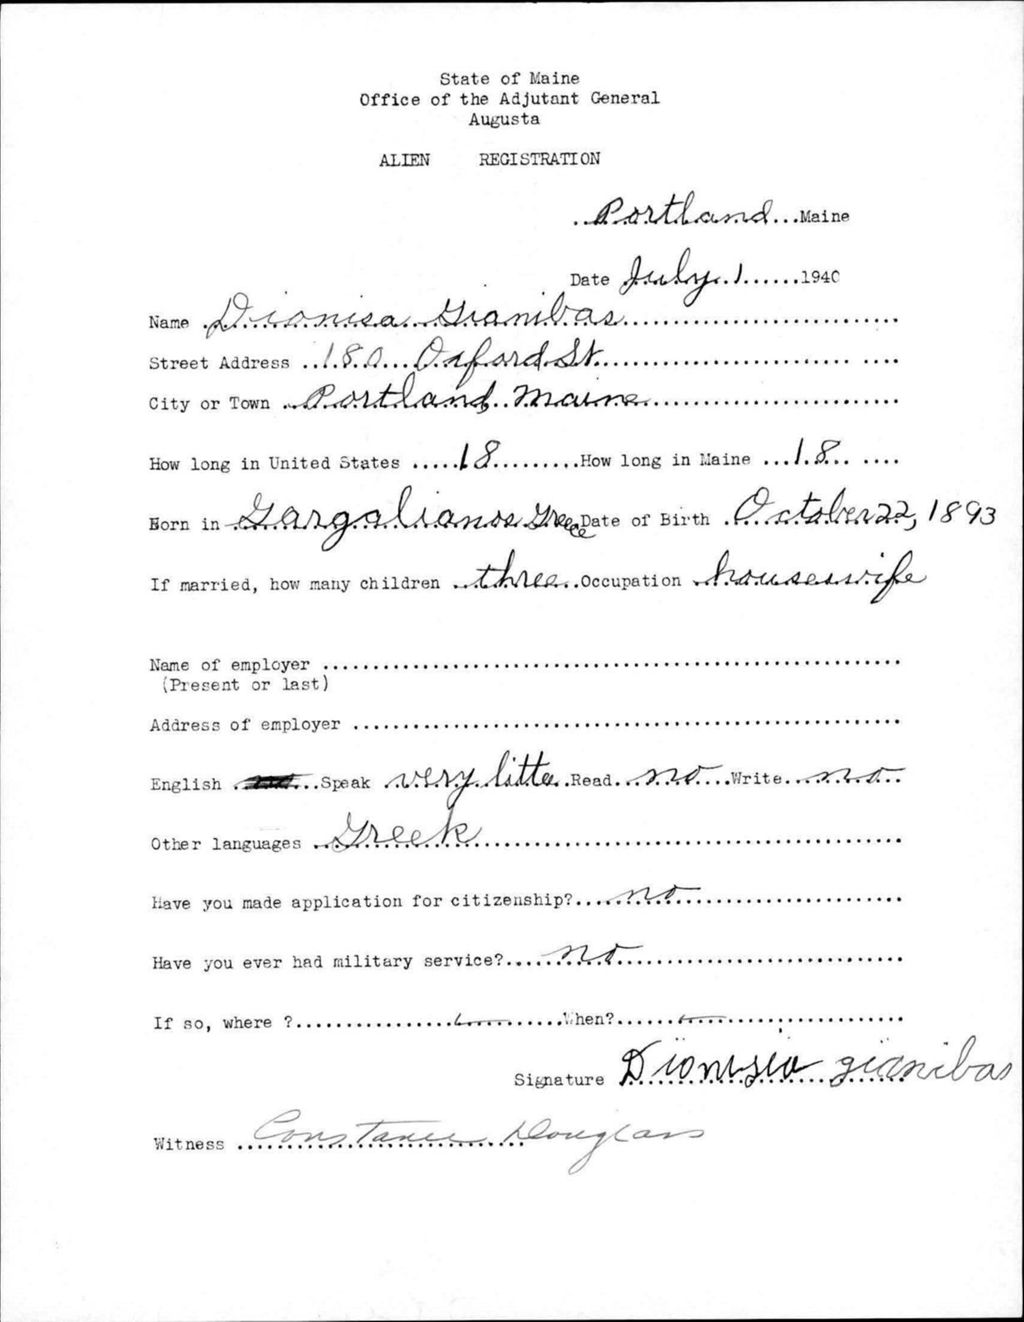 State of Maine
Office of the Adjutant General
Augusta
ALIEN REGISTRATION
Portland Maine
Date July 1 1940
Name Dionisa Gianibas
Street Address 180 Oxford St.
City or Town Portland Maine
How long in United States 18 How long in Maine 18
Born in Gargalianos Greece Date of Birth October 22, 1893
If married, how many children three Occupation housewife
Name of employer
(Present or last)
Address of employer
English Speak very little Read no Write no
Other languages Greek
Have you made application for citizenship? no
Have you ever had military service? no
If so, where ? When?
Signature Dionisia gianibas
Witness Constance Douglass